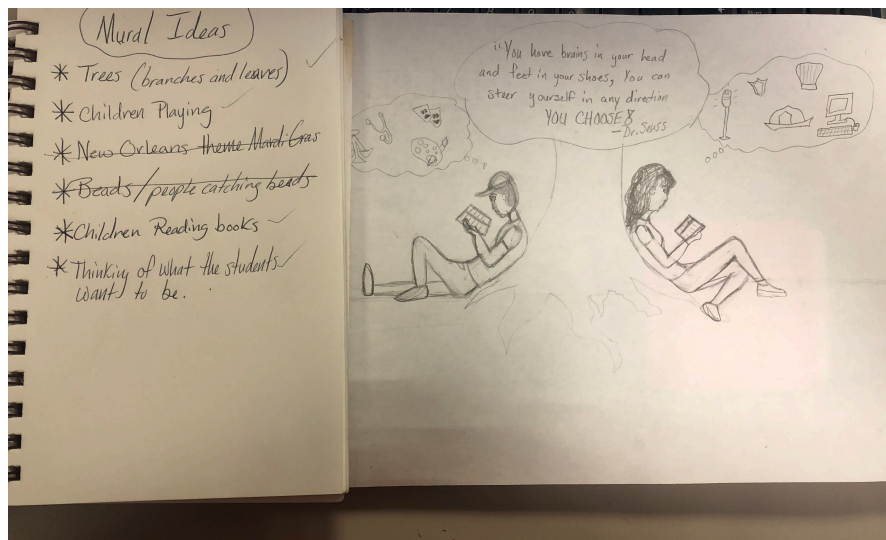 Mural Ideas
* Trees (branches and leaves)
* Children Playing
* New Orleans theme Mardi Gras
* Beads/people catching beads
* Children Reading books
* Thinking of what the students
want to be.
"You have brains in your head
and feet in your shoes, You can
steer yourself in any direction
YOU CHOOSE"
-Dr. Seuss